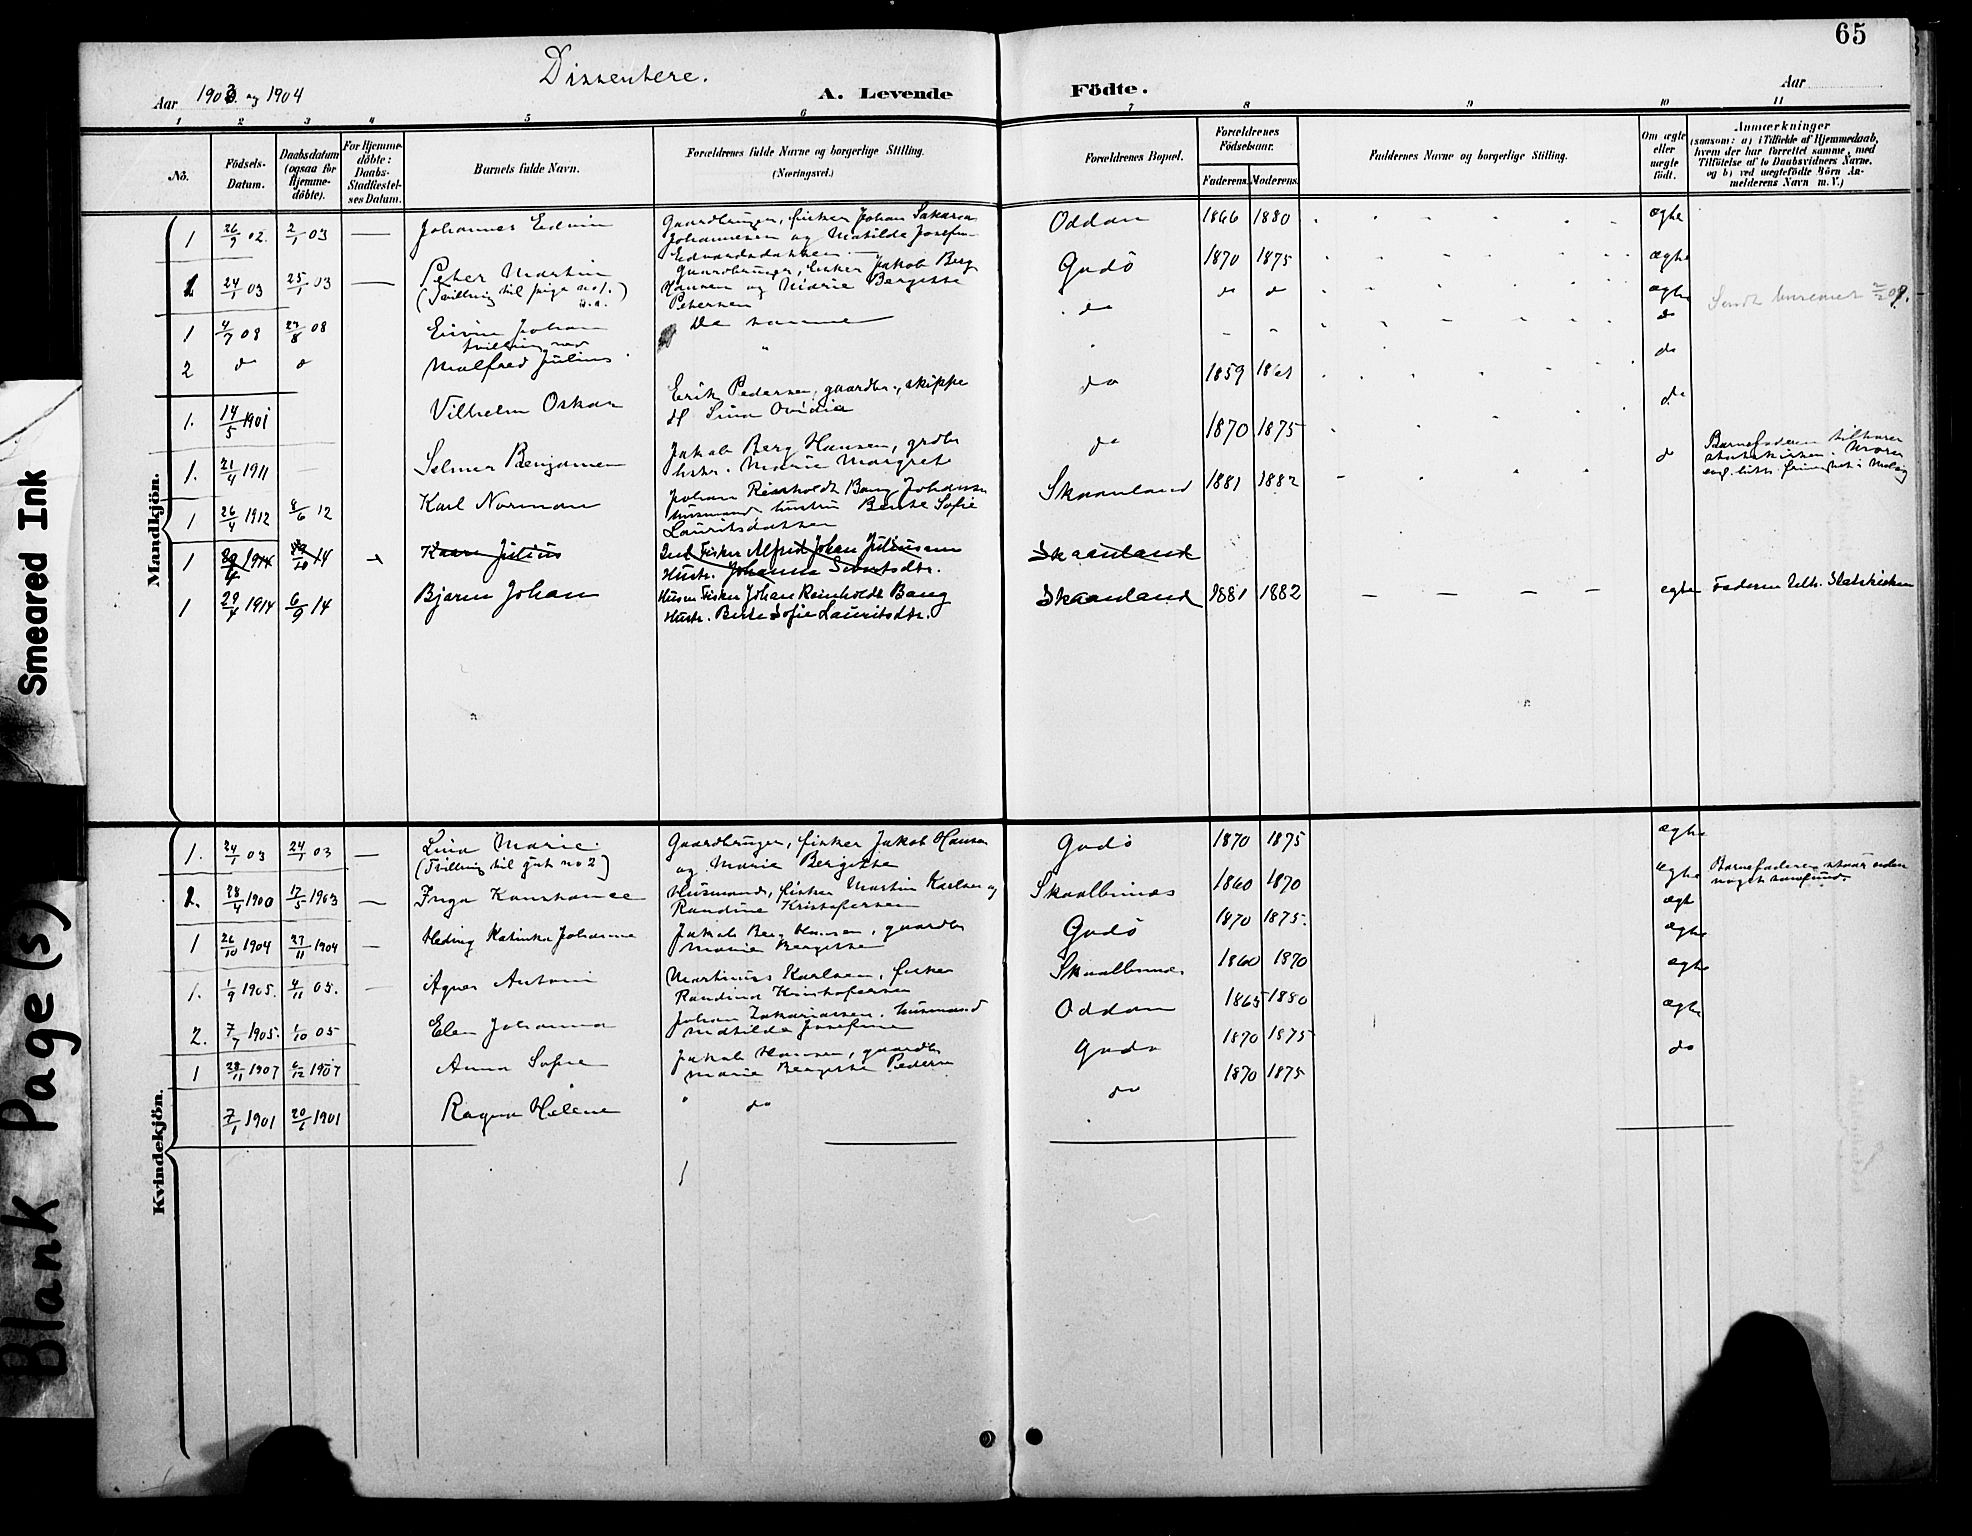 65
Dissentere.
Aar 1903 og 1904
A. Levende Födte.
Aar
1 2 3 4 5 6 7 8 9 10 11
No.
Födsels-Datum.
Daabsdatum (ogsaa for Hjemme-döbte).
For Hjemme-döbte: Daabs-Stadfæstel-ses Datum.
Barnets fulde Navn.
Forældrenes fulde Navne og borgerlige Stilling.
(Næringsvei.)
Forældrenes Bopæl.
Forældrenes Födselsaar.
Faderens. Moderens.
Faddernes Navne og borgerlige Stilling.
Om ægte eller uægte födt.
Anmærkninger
(saasom: a) i Tilfælde af Hjemmedaab, hvem der har forrettet samme, med Tilföielse af to Daabsvidners Navne, og b) ved uægtefödte Börn An-melderens Navn m. V.)
Mandkjön.
1 26/9 02. 2/1 03 — Johannes Edvin Gaardbruger, fisker Johan Sakarias Johannesen og Matilde Josefine Edvardsdatter Oddan 1866 1880 ægte
24/1 03 25/1 03 — Peter Martin (Tvilling til pige no 1.) Gaardbruger, fisker Jakob Berg Hansen og Marie Bergitte Petersen Godö 1870 1875 ægte
1 4/7 08 27/8 08 Eivin Johan De samme do do do ægte
tvilling med
2 do do Malfred Julius
1. 14/5 1901 Vilhelm Oskar Erik Pedersen, gaardbr., skipper Sina Ovidia do 1859 do
1. 21/4 1911 — Selmer Benjamin Jakob Berg Hansen, grdbr fisker. Marie Margrete do 1870 1875 do Barnefaderen tilhører statskirken. Moren
1 26/4 1912 8/6 12 Karl Norman Johan Reinholdt Bang Johansen husmand hustru Berte Sofie Lauritsdatter Skaanland 1881 1882
1 14 Kaare Julius Fisker Alfred Johan Juliussen Hustr. Johanna Sivertsdtr. Skaanland
1 29/4 1914 6/9 14 Bjarne Johan Husm Fisker Johan Reinholdt Bang Hustr. Berte Sofie Lauritsdtr. Skaanland 1881 1882 — — — — ægte Faderen tilh. Statskirken
Kvindekjön.
1. 24/1 03 24/1 03 — Lina Marie (Tvilling til gut no 2) Gaardbruger, fisker Jakob Hansen og Marie Bergitte Godö 1870 1875 ægte
2. 28/4 1900 17/5 1903 — Inga Konstance Husmand, fisker Martin Karlsen og Randine Kristofersen Skaalbunes 1860 1870 ægte Barnefaderen staar uden noget samfund.
1 26/10 1904 27/11 1904 — Hedvig Katinka Johanne Jakob Berg Hansen, gaardbr Marie Bergitte Godö 1870 1875. ægte
1. 1/9 1905. 4/11 05. — Agnes Antonie Martinus Karlsen, fisker Randina Kristofersen Skaalbunes 1860 1870 ægte
2. 7/7 1905. 1/10 05 Elen Johanna Johan Zakariassen, husmand Matilde Josefine Oddan 1865 1880 ægte
1 28/11 1907 6/12 1907 Anna Sofie Jakob Hansen, gaardbr Marie Bergitte Pedersen Godö 1870 1875 do
7/1 1901 20/1 1901 Ragna Helene do do 1870 1875
Smeared Ink
Blank Page(s)